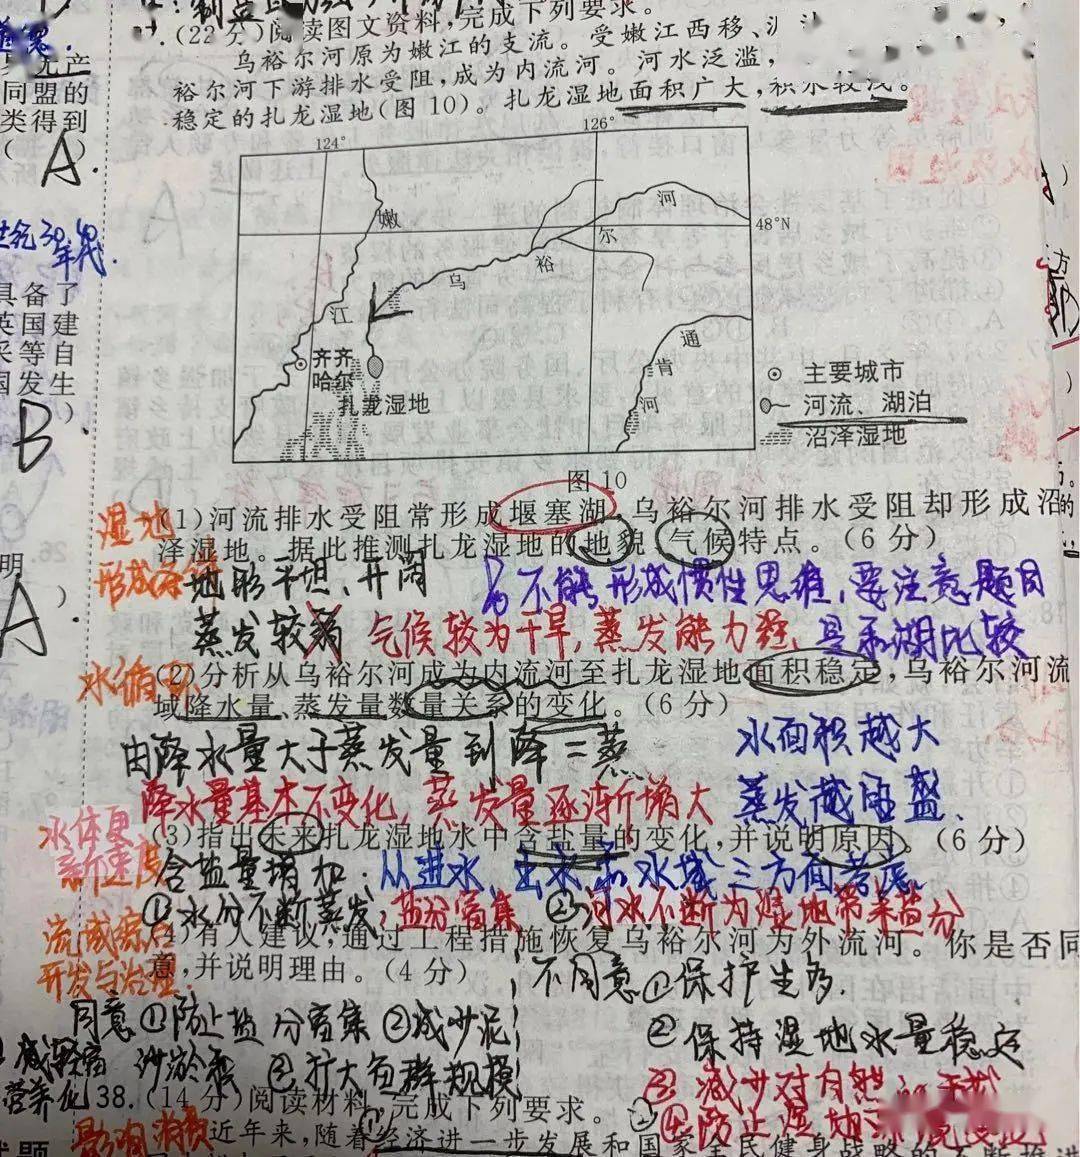 (22分)阅读图文资料,完成下列要求。
乌裕尔河原为嫩江的支流。受嫩江西移、
裕尔河下游排水受阻,成为内流河。河水泛滥,
稳定的扎龙湿地(图10)。扎龙湿地面积广大,积水较浅。
无产
同盟的
类得到
( )
A.
124°
126°
嫩
河
48°N
尔
裕
乌
江
齐齐
哈尔
扎龙湿地
通
肯
河
主要城市
河流、湖泊
沼泽湿地
年代.
具备了
英国建
采等自
国发生
)
B
图10
湿地
(1)河流排水受阻常形成堰塞湖,乌裕尔河排水受阻却形成沼
泽湿地。据此推测扎龙湿地的地貌、气候特点。(6分)
明
)
A.
形成条件
地形平坦、开阔
不能形成惯性思维,要注意题目
蒸发较弱
气候较为干旱,蒸发能力强
是和湖比较
水循环
(2)分析从乌裕尔河成为内流河至扎龙湿地面积稳定,乌裕尔河流
域降水量、蒸发量数量关系的变化。(6分)
由降水量大于蒸发量到降=蒸
水面积越大
降水量基本不变化,蒸发量逐渐增大
蒸发越旺盛.
水体更
新速度
(3)指出未来扎龙湿地水中含盐量的变化,并说明原因。(6分)
含盐量增加.
从进水、出水和水域三方面考虑.
①水分不断蒸发,盐分富集 ②河水不断为湿地带来盐分
流域综合
开发与治理.
(4)有人建议,通过工程措施恢复乌裕尔河为外流河。你是否同
意,并说明理由。(4分)
不同意①保护生多.
同意①防止盐分富集 ②减少泥
②保持湿地水量稳定
减轻富
营养化
沙淤积
③扩大鱼群规模
③减少对自然的干扰
④防止湿地
38.(14分)阅读材料,完成下列要求。
影响消费
近年来,随着经济进一步发展和国家全民健身战略的不断推进